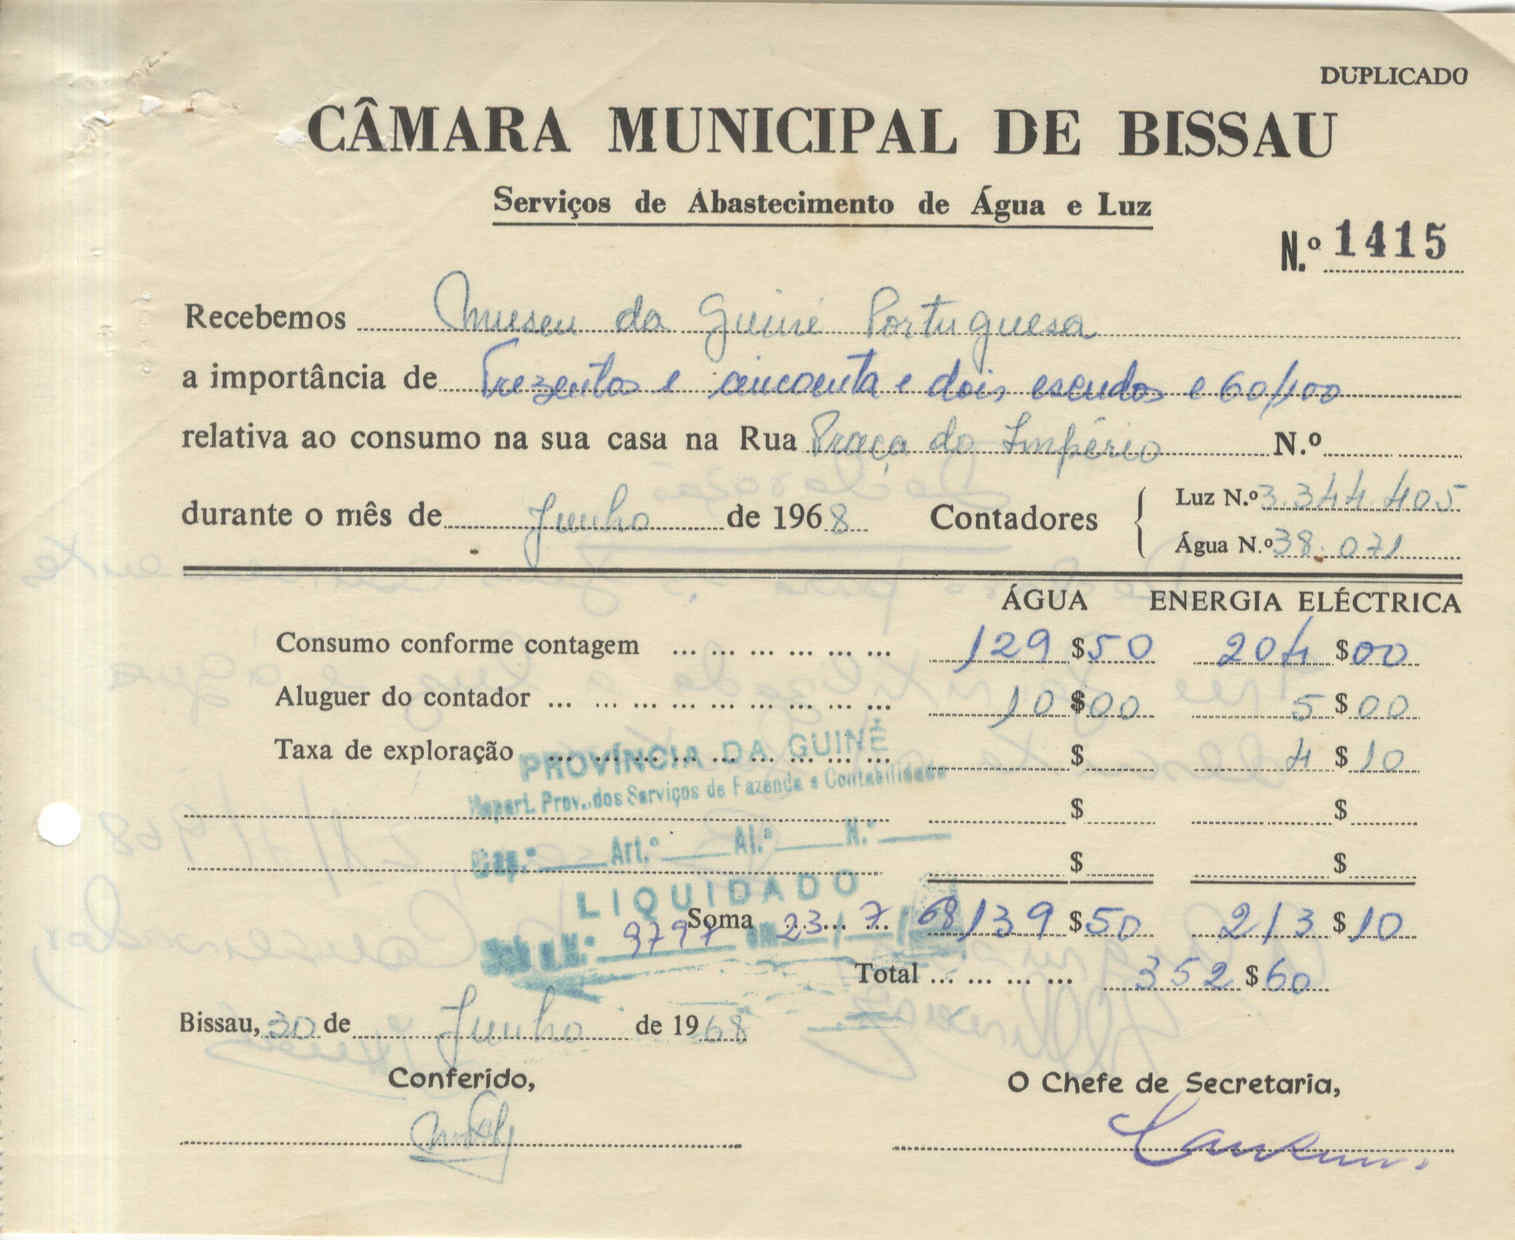 DUPLICADO
CÂMARA MUNICIPAL DE BISSAU
Serviços de Abastecimento de Água e Luz
N.º 1415
Recebemos Museu da Guiné Portuguesa
a importância de Trezentos e cincoenta e dois escudos e 60/100
relativa ao consumo na sua casa na Rua Praça do Império N.º
durante o mês de Junho de 1968 Contadores
Luz N.º 3.344.405
Água N.º 38.071
ÁGUA ENERGIA ELÉCTRICA
Consumo conforme contagem ... ... ... ... ... ... 129 $ 50 204 $ 00
Aluguer do contador ... ... ... ... ... ... ... ... ... 10 $ 00 5 $ 00
Taxa de exploração ... ... ... ... ... ... ... ... ... $ 4 $ 10
PROVÍNCIA DA GUINÉ
Repart. Prov. dos Serviços de Fazenda e Contabilidade
$ $
Cap.º Art.º Al.ª N.º
$ $
LIQUIDADO
Soma ... ... 139 $ 50 213 $ 10
9797 em 23 / 7 / 68
Total ... ... ... ... 352 $ 60
Bissau, 30 de Junho de 1968
Conferido,
O Chefe de Secretaria,